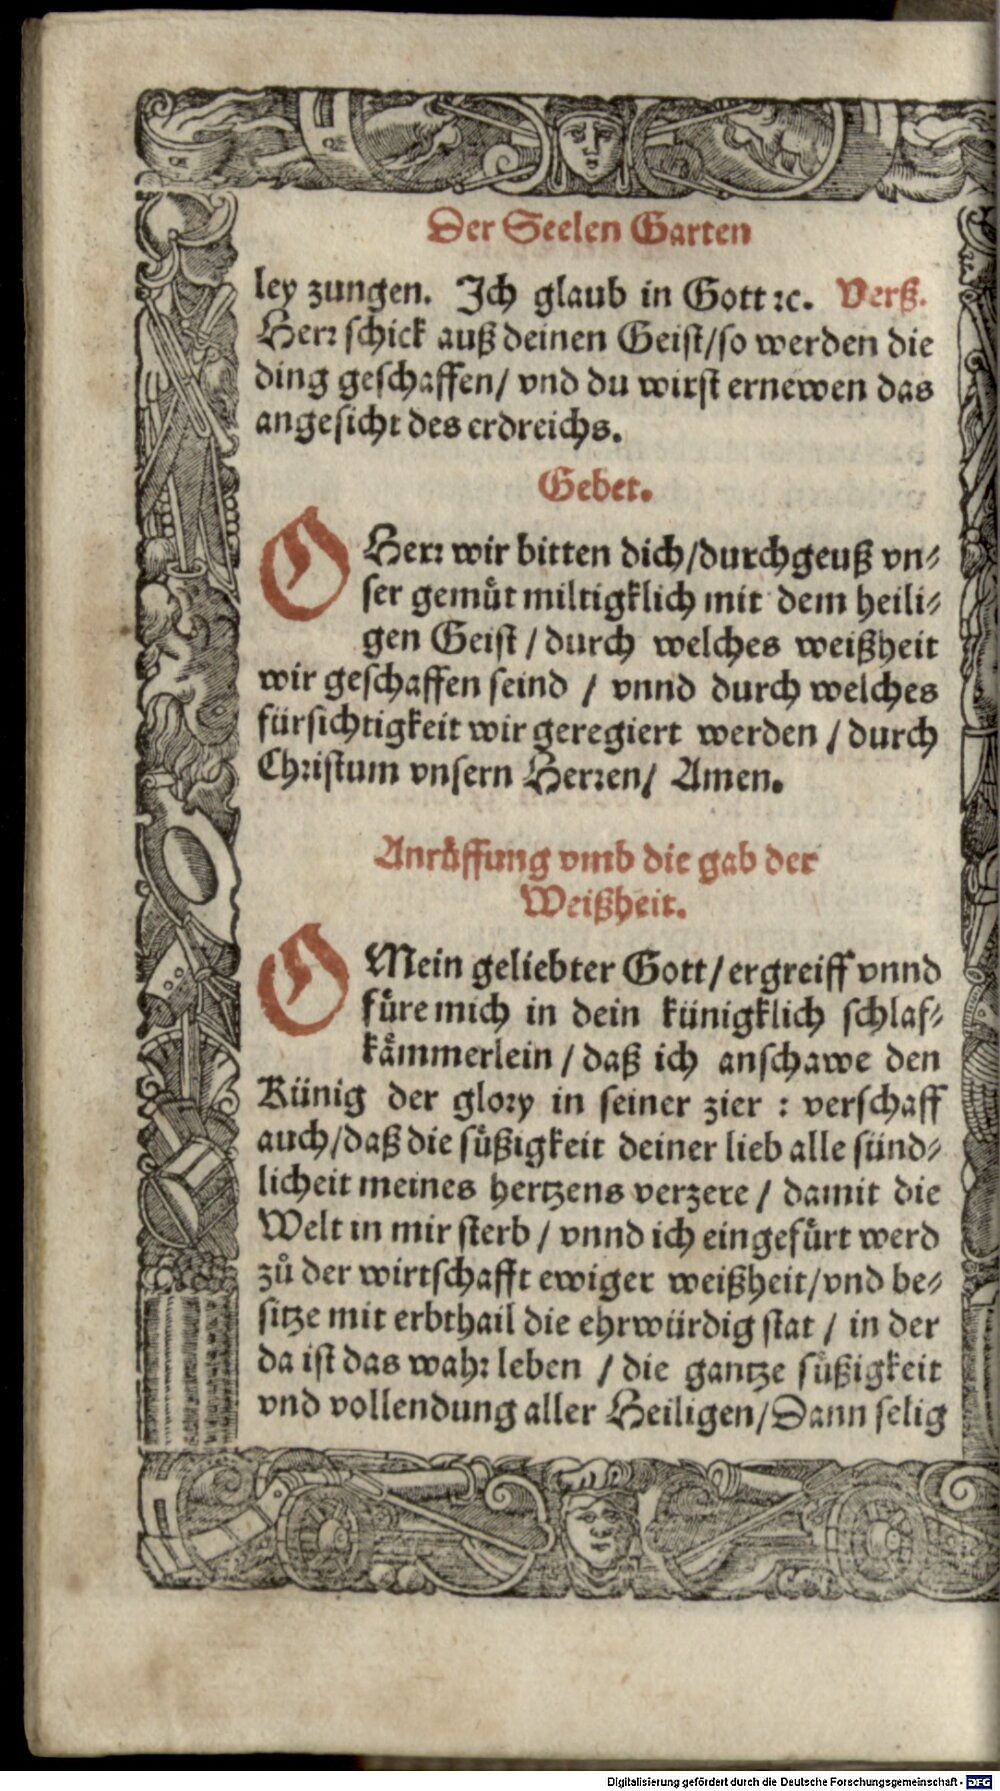 Der Seelen Garten
ley zungen. Ich glaub in Gott ꝛc. Verß.
Herꝛ schick auß deinen Geist/so werden die
ding geschaffen/ vnd du wirst ernewen das
angesicht des erdreichs.
Gebet.
O Herꝛ wir bitten dich/durchgeuß vn-
ser gemuͤt miltigklich mit dem heili-
gen Geist / durch welches weißheit
wir geschaffen seind / vnnd durch welches
fürsichtigkeit wir geregiert werden / durch
Chꝛistum vnsern Herꝛen/ Amen.
Anruͤffung vmb die gab der
Weißheit.
O Mein geliebter Gott/ergreiff vnnd
fuͤre mich in dein künigklich schlaf-
kaͤmmerlein / daß ich anschawe den
Künig der gloꝛy in seiner zier : verschaff
auch/daß die suͤßigkeit deiner lieb alle sünd-
licheit meines hertzens verzere / damit die
Welt in mir sterb / vnnd ich eingefuͤrt werd
zuͦ der wirtschafft ewiger weißheit/vnd be-
sitze mit erbthail die ehrwürdig stat / in der
da ist das wahꝛ leben / die gantze suͤßigkeit
vnd vollendung aller Heiligen/Dann selig
Digitalisierung gefördert durch die Deutsche Forschungsgemeinschaft - DFG